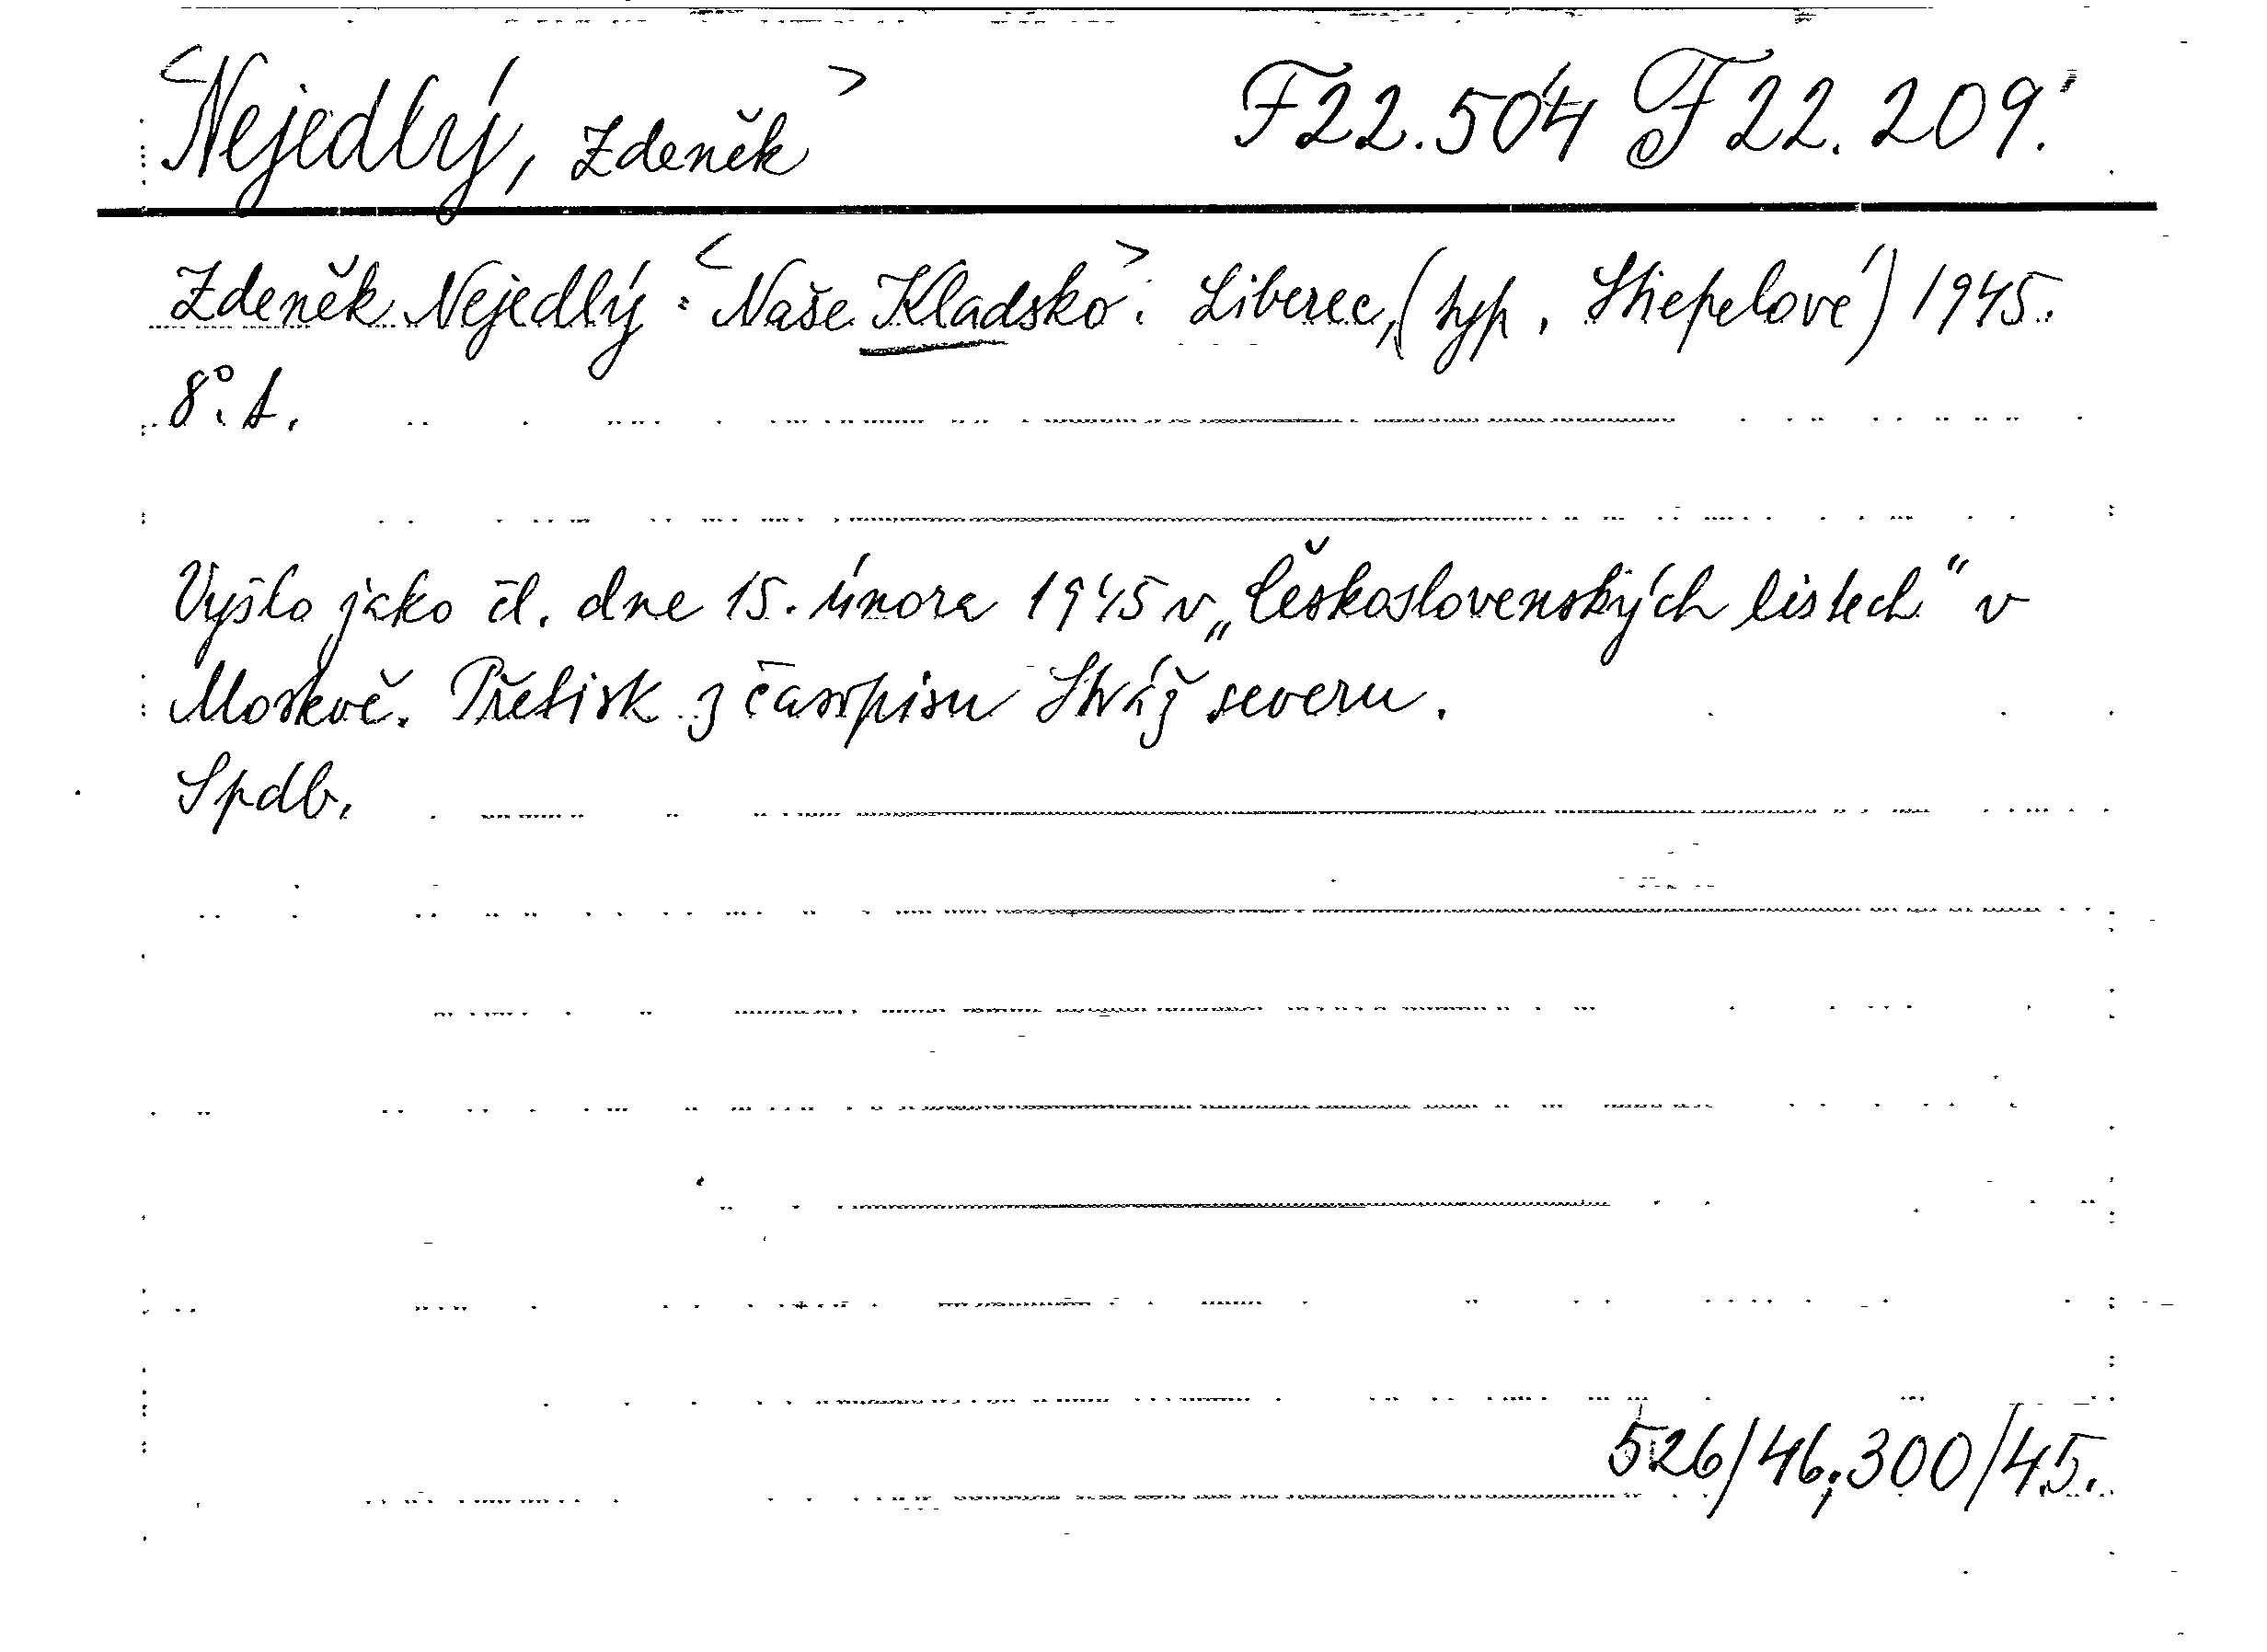 <Nejedlý, Zdeněk> F22.504 F22.209.
Zdeněk Nejedlý: <Naše Kladsko>. Liberec, (typ. Stiepelové) 1945.
8°.
Vyšlo jako čl. dne 15. února 1945 v „Československých listech“ v
Moskvě. Přetisk z časopisu Stráž severu.
Spdb.
526/46; 300/45.